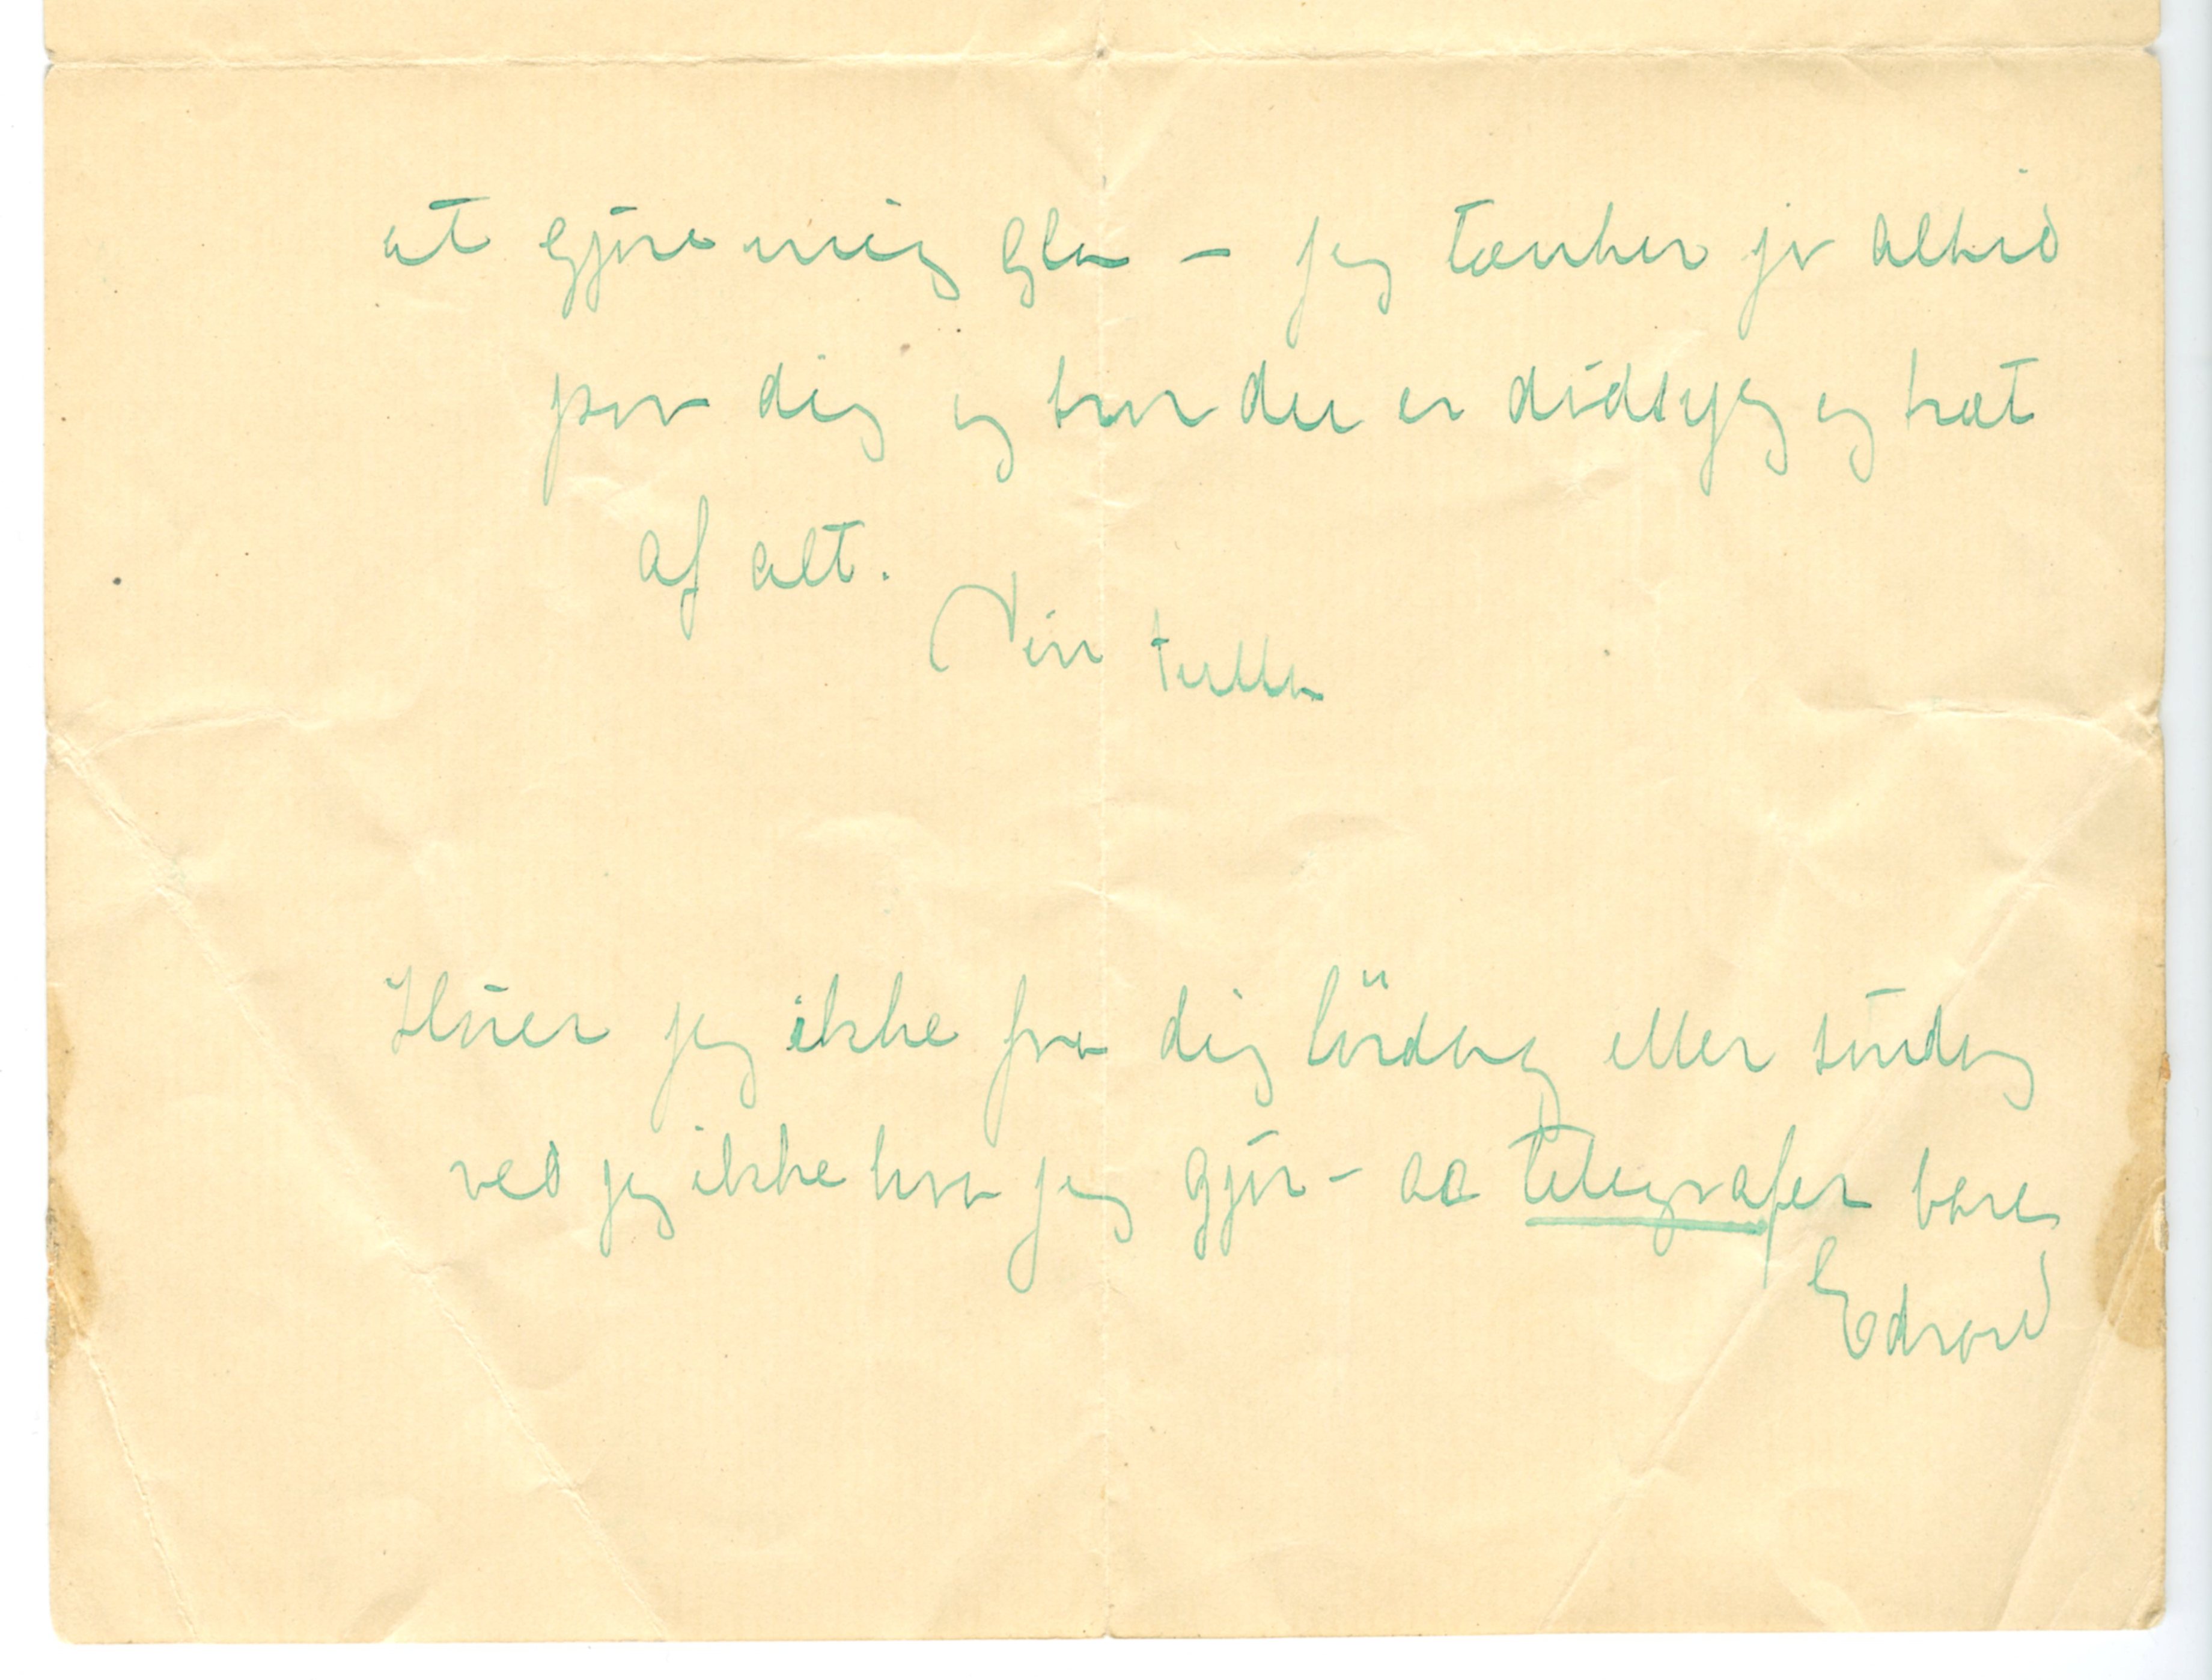 at gjöre mig gla – jeg tænker jo altid
paa dig og hvor du er dödsyg og træt
af alt.
Din tulla
Hörer jeg ikke fra dig lördag eller söndag
ved jeg ikke hva jeg gjör – aa telegrafer bare
Edvard